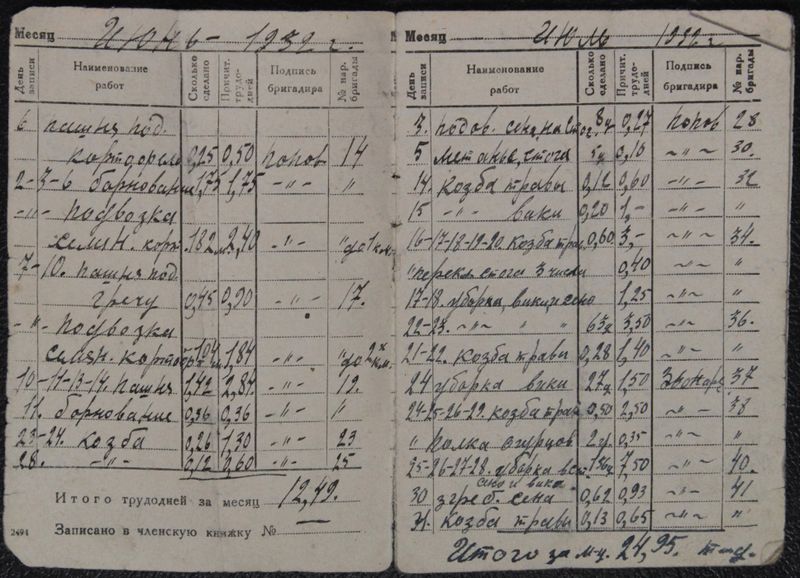 Месяц Июнь - 1932 г.
День записи | Наименование работ | Сколько сделано | Причит. трудодней | Подпись бригадира | № нар. бригады
6 пашня под.
0,25 0,50 Попов 14
2-3-6. борнование 1,75 1,75 -"- "
-"- подвозка
семян. 2,40 -"- "до 1 км.
7-10. пашня под
гречу 0,45 0,90 -"- 17.
-"- подвозка
семян. 1,84 -"- "до 2х км.
10-11-13-17. пашня 1,42 2,84 -"- 19.
11. борнование 0,36 0,36 -"- "
23-24. козба 0,26 1,30 -"- 23
28. -"- 0,12 0,60 -"- 25
Итого трудодней за месяц 12,49.
Записано в членскую книжку № —
2494
Месяц Июль 1932 г.
День записи | Наименование работ | Сколько сделано | Причит. трудодней | Подпись бригадира | № нар. бригады
3. подов. сена на 0,27 Попов 28
5 метанье стога 0,10 -"- 30.
14. козба травы 0,12 0,60 -"- 32
15 -"- вики 0,20 1,- -"- "
16-17-18-19-20. козба трав 0,60 3,- -"- 34.
" стога 3 числа 0,40 -"- "
17-18. уборка вики 1,25 -"- "
22-23. -"- " " 3,50 -"- 36.
21-22. козба травы 0,28 1,40 -"- "
24 уборка вики 1,50 37
24-25-26-29. козба трав 0,50 2,50 -"- 38
" полка огурцов 0,35 -"- "
25-26-27-28. уборка 7,50 -"- 40.
сено и вика
30 згреб. сена 0,62 0,93 -"- 41
31. козба травы 0,13 0,65 -"- "
Итого за м-ц. 24,95.